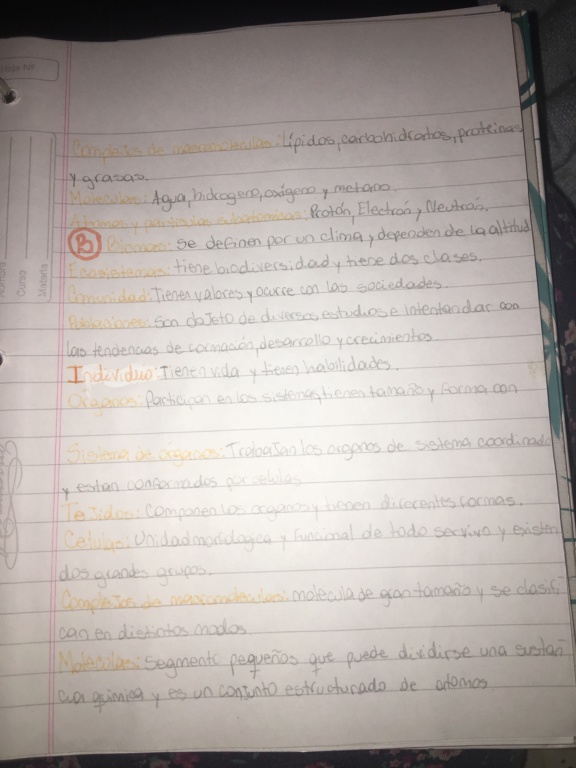 Complejos de macromoleculas: Lípidos, carbohidratos, proteinas
y grasas.
Moleculas: Agua, hidrogeno, oxígeno y metano.
Atomos y particulas subatomicas: Protón, Electrón y Neutrón.
B Biomas: Se definen por un clima y dependen de la altitud
Ecosistemas: tiene biodiversidad y tiene dos clases.
Comunidad: Tienen valores y ocurre con las sociedades.
Poblaciones: Son objeto de diversos estudios e intentan dar con
las tendencias de formación, desarrollo y crecimientos.
Individuo: Tienen vida y tienen habilidades.
Organos: Participan en los sistemas, tienen tamaño y forma con
Sistema de organos: Trabajan los organos de sistema coordinado
y estan conformados por celulas
Tejidos: Componen los organos y tienen diferentes formas.
Celulas: Unidad morfologica y funcional de todo ser vivo y existen
dos grandes grupos.
Complejos de macromoleculas: molecula de gran tamaño y se clasifi-
can en distintos modos
Moleculas: Segmento pequeños que puede dividirse una sustan-
cia química y es un conjunto estructurado de atomos
Curso
Materia